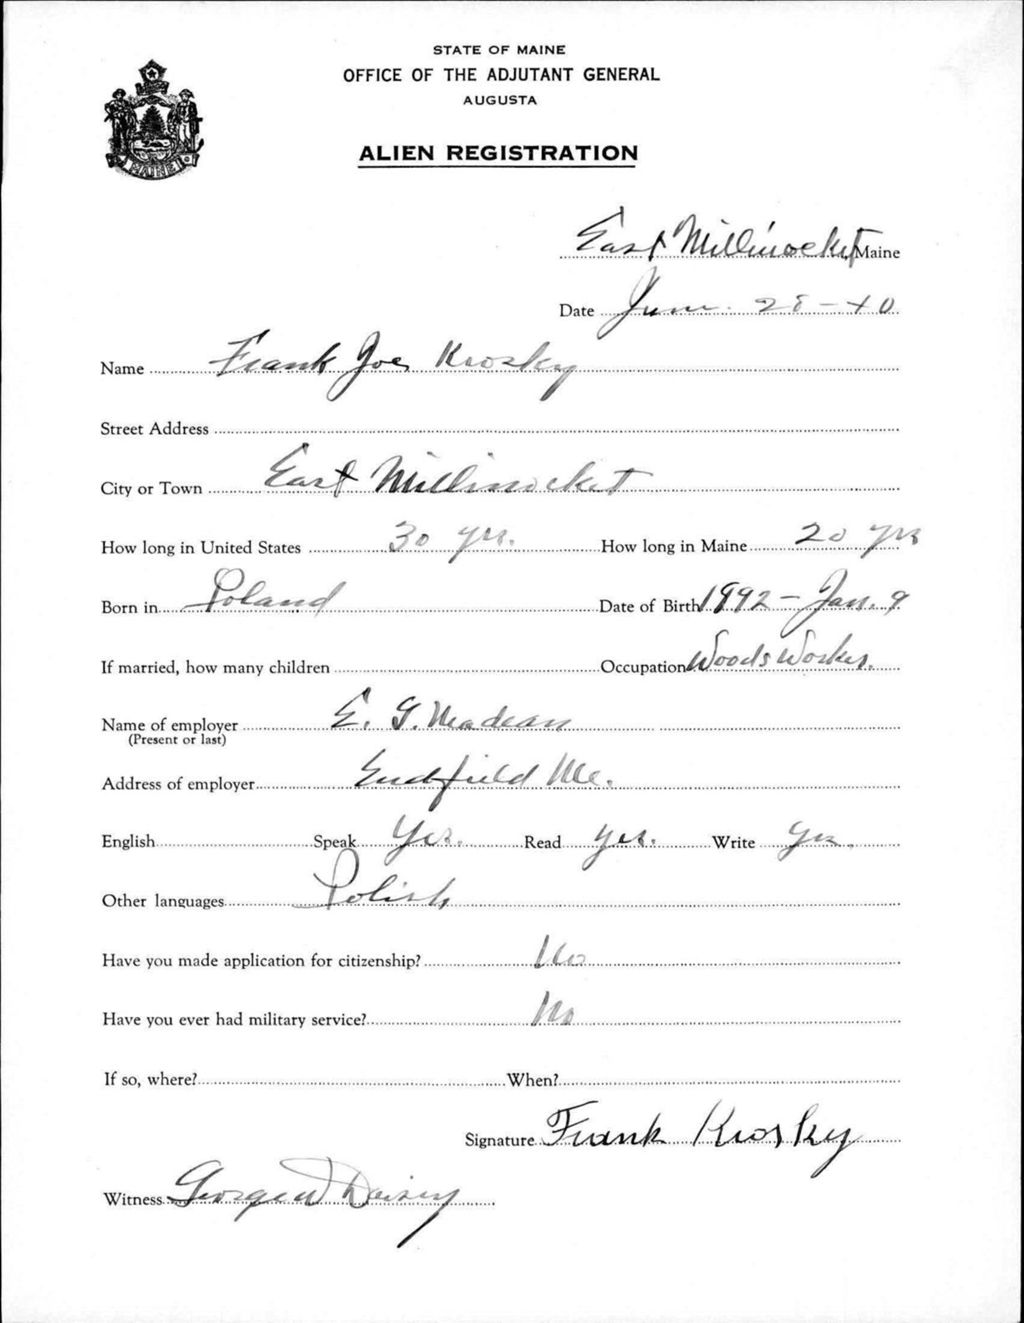 STATE OF MAINE
OFFICE OF THE ADJUTANT GENERAL
AUGUSTA
MAINE
ALIEN REGISTRATION
East Millinocket, Maine
Date June 28-40
Name Frank Joe Krosky
Street Address
City or Town East Millinocket
How long in United States 30 yrs. How long in Maine 20 yrs
Born in Poland Date of Birth 1892 - Jan. 9
If married, how many children Occupation Woods Worker.
Name of employer E. G. Meadean
(Present or last)
Address of employer Endfield Me.
English Speak Yes. Read yes. Write yes.
Other languages Polish
Have you made application for citizenship? No
Have you ever had military service? No
If so, where? When?
Signature Frank Krosky
Witness George W Daisey